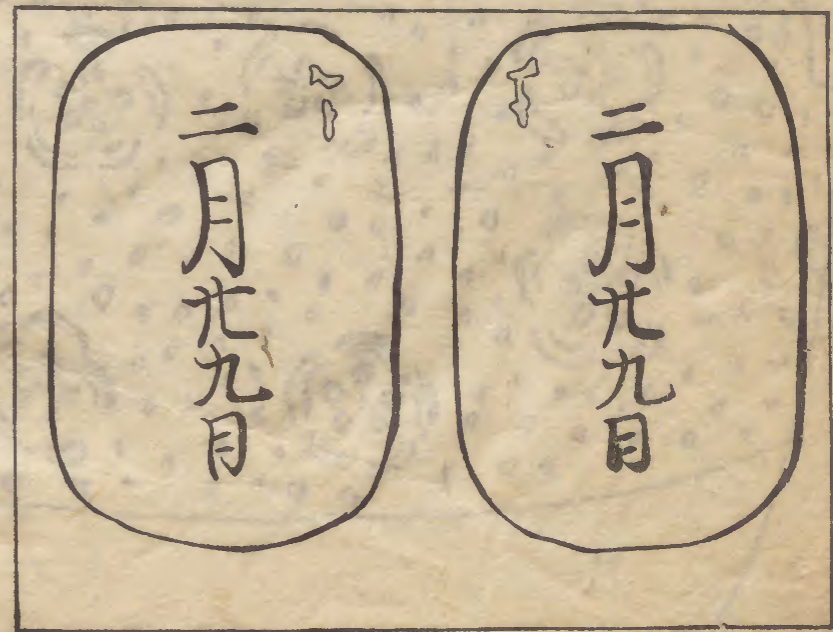 二月廿九目
二月廿九月